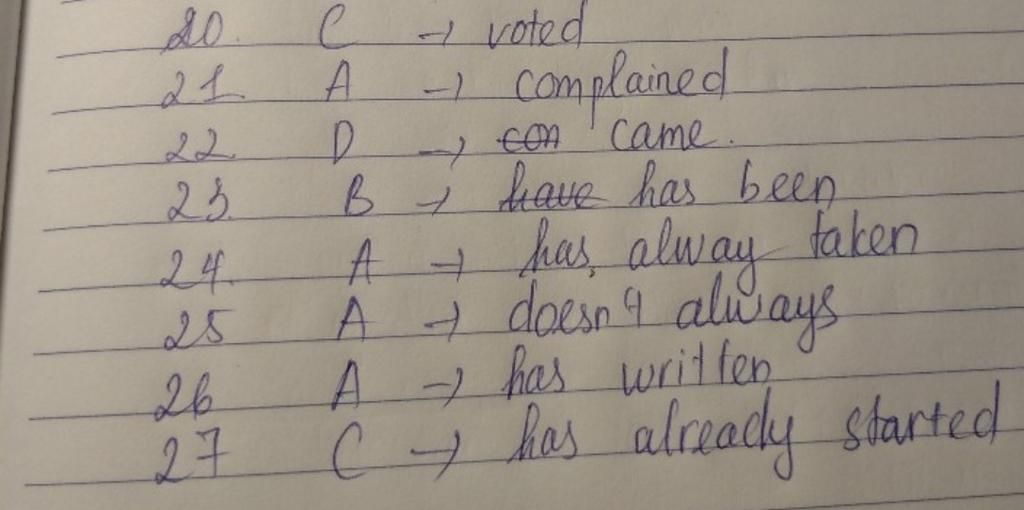 20. C → voted
21. A → complained
22. D → con came.
23. B → have has been
24. A → has alway taken
25 A → doesn't always
26 A → has written
27 C → has already started